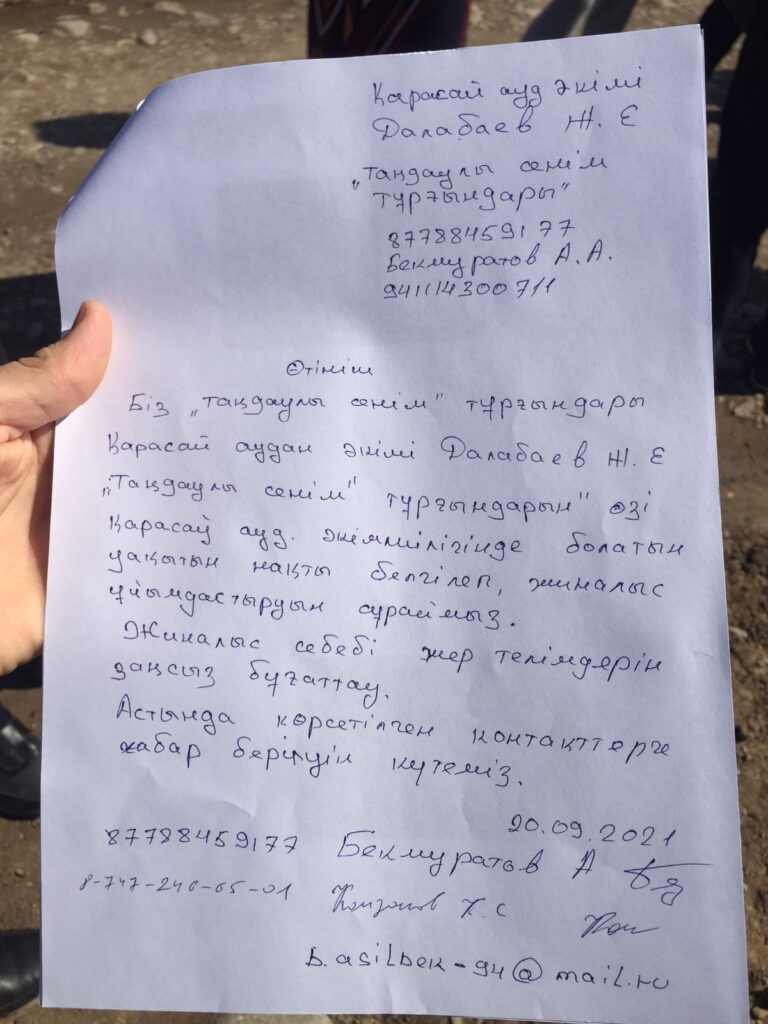 Қарасай ауд әкімі
Далабаев Ж. Е
"таңдаулы сенім
тұрғындары"
87788459177
Бекмуратов А.А.
941114300711
Өтініш
Біз "таңдаулы сенім" тұрғындары
Қарасай аудан әкімі Далабаев Ж. Е
"Таңдаулы сенім" тұрғындарын" өзі
Қарасай ауд. әкімшілігінде болатын
уақытын нақты белгілеп, жиналыс
ұйымдастыруын сұраймыз.
Жиналыс себебі жер телімдерін
заңсыз бұғаттау.
Астында көрсетілген контактттерге
хабар берілуін күтеміз.
20.09.2021
87788459177 Бекмуратов А
8-747-246-65-01 Х. С
b.asilbek-94@mail.ru